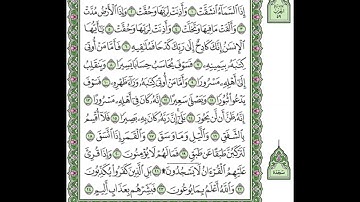 إِذَا ٱلسَّمَآءُ ٱنشَقَّتۡ ١ وَأَذِنَتۡ لِرَبِّهَا وَحُقَّتۡ ٢ وَإِذَا ٱلۡأَرۡضُ مُدَّتۡ
٣ وَأَلۡقَتۡ مَا فِيهَا وَتَخَلَّتۡ ٤ وَأَذِنَتۡ لِرَبِّهَا وَحُقَّتۡ ٥ يَٰٓأَيُّهَا
ٱلۡإِنسَٰنُ إِنَّكَ كَادِحٌ إِلَىٰ رَبِّكَ كَدۡحٗا فَمُلَٰقِيهِ ٦ فَأَمَّا مَنۡ أُوتِيَ
كِتَٰبَهُۥ بِيَمِينِهِۦ ٧ فَسَوۡفَ يُحَاسَبُ حِسَابٗا يَسِيرٗا ٨ وَيَنقَلِبُ
إِلَىٰٓ أَهۡلِهِۦ مَسۡرُورٗا ٩ وَأَمَّا مَنۡ أُوتِيَ كِتَٰبَهُۥ وَرَآءَ ظَهۡرِهِۦ ١٠ فَسَوۡفَ
يَدۡعُواْ ثُبُورٗا ١١ وَيَصۡلَىٰ سَعِيرًا ١٢ إِنَّهُۥ كَانَ فِيٓ أَهۡلِهِۦ مَسۡرُورًا ١٣
إِنَّهُۥ ظَنَّ أَن لَّن يَحُورَ ١٤ بَلَىٰٓۚ إِنَّ رَبَّهُۥ كَانَ بِهِۦ بَصِيرٗا ١٥ فَلَآ أُقۡسِمُ
بِٱلشَّفَقِ ١٦ وَٱلَّيۡلِ وَمَا وَسَقَ ١٧ وَٱلۡقَمَرِ إِذَا ٱتَّسَقَ ١٨
لَتَرۡكَبُنَّ طَبَقًا عَن طَبَقٖ ١٩ فَمَا لَهُمۡ لَا يُؤۡمِنُونَ ٢٠ وَإِذَا قُرِئَ
عَلَيۡهِمُ ٱلۡقُرۡءَانُ لَا يَسۡجُدُونَ ٢١ بَلِ ٱلَّذِينَ كَفَرُواْ يُكَذِّبُونَ
٢٢ وَٱللَّهُ أَعۡلَمُ بِمَا يُوعُونَ ٢٣ فَبَشِّرۡهُم بِعَذَابٍ أَلِيمٍ ٢٤
سجدة